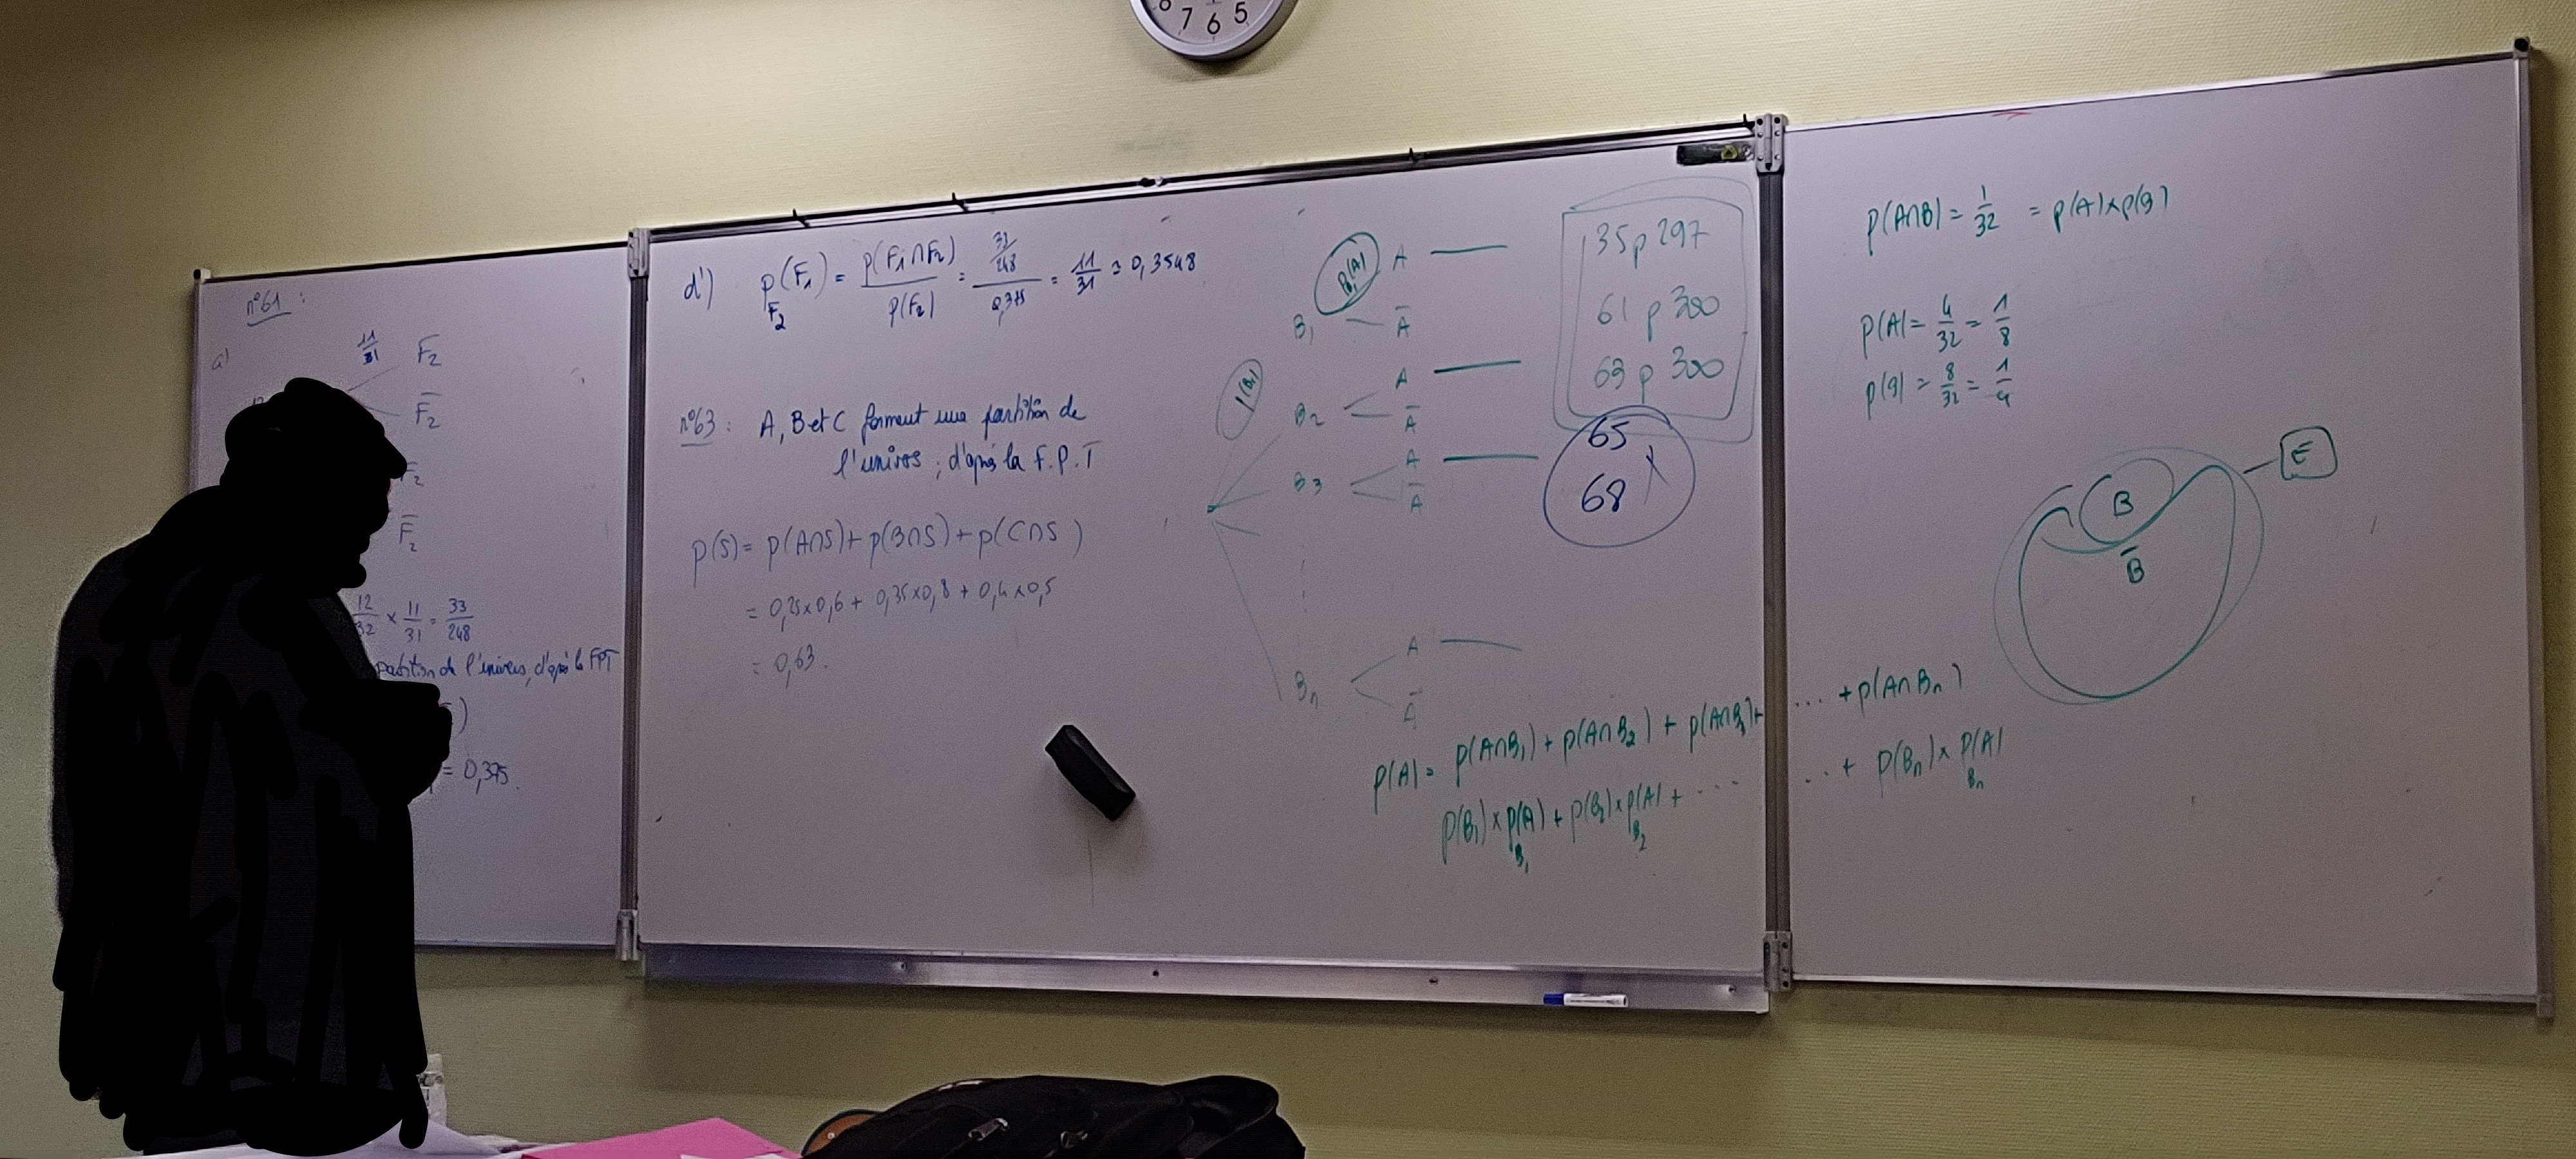 8 7 6 5
n°61 :
a)
11/31 F₂
F̅₂
F₂
F̅₂
12/32 × 11/31 = 33/248
partition de l'univers, d'après la FPT
)
= 0,375.
d) p_F₂(F₁) = p(F₁∩F₂)/p(F₂) = (33/248)/0,375 = 11/31 ≈ 0,3548
n°63 : A, B et C forment une partition de
l'univers ; d'après la F.P.T
p(S) = p(A∩S) + p(B∩S) + p(C∩S)
= 0,25×0,6 + 0,35×0,8 + 0,4×0,5
= 0,63.
p_B₁(A) A
B₁ A̅
p(B₁) A
B₂ A̅
A
B₃ A̅
A
Bₙ A̅
35 p 297
61 p 300
63 p 300
65
68
p(A) = p(A∩B₁) + p(A∩B₂) + p(A∩B₃) + ... + p(A∩Bₙ)
p(B₁) × p_B₁(A) + p(B₂) × p_B₂(A) + ... ... + p(Bₙ) × p_Bₙ(A)
p(A∩B) = 1/32 = p(A)×p(B)
p(A) = 4/32 = 1/8
p(B) = 8/32 = 1/4
E
B
B̅